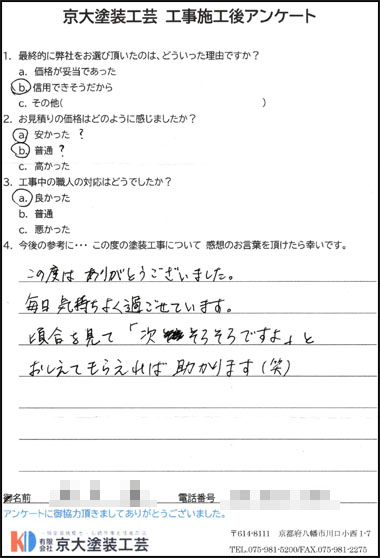 京大塗装工芸 工事施工後アンケート
1. 最終的に弊社をお選び頂いたのは、どういった理由ですか?
a. 価格が妥当であった
b. 信用できそうだから
c. その他( )
2. お見積りの価格はどのように感じましたか?
a. 安かった ?
b. 普通 ?
c. 高かった
3. 工事中の職人の対応はどうでしたか?
a. 良かった
b. 普通
c. 悪かった
4. 今後の参考に・・・ この度の塗装工事について 感想のお言葉を頂けたら幸いです。
この度は ありがとうございました。
毎日 気持ちよく過ごせています。
頃合を見て「次 そろそろですよ」と
おしえてもらえれば 助かります(笑)
御名前 電話番号
アンケートに御協力頂きましてありがとうございました。
KD 有限会社 京大塗装工芸
〒614-8111 京都府八幡市川口小西 1-7
TEL.075-981-5200/FAX.075-981-2275